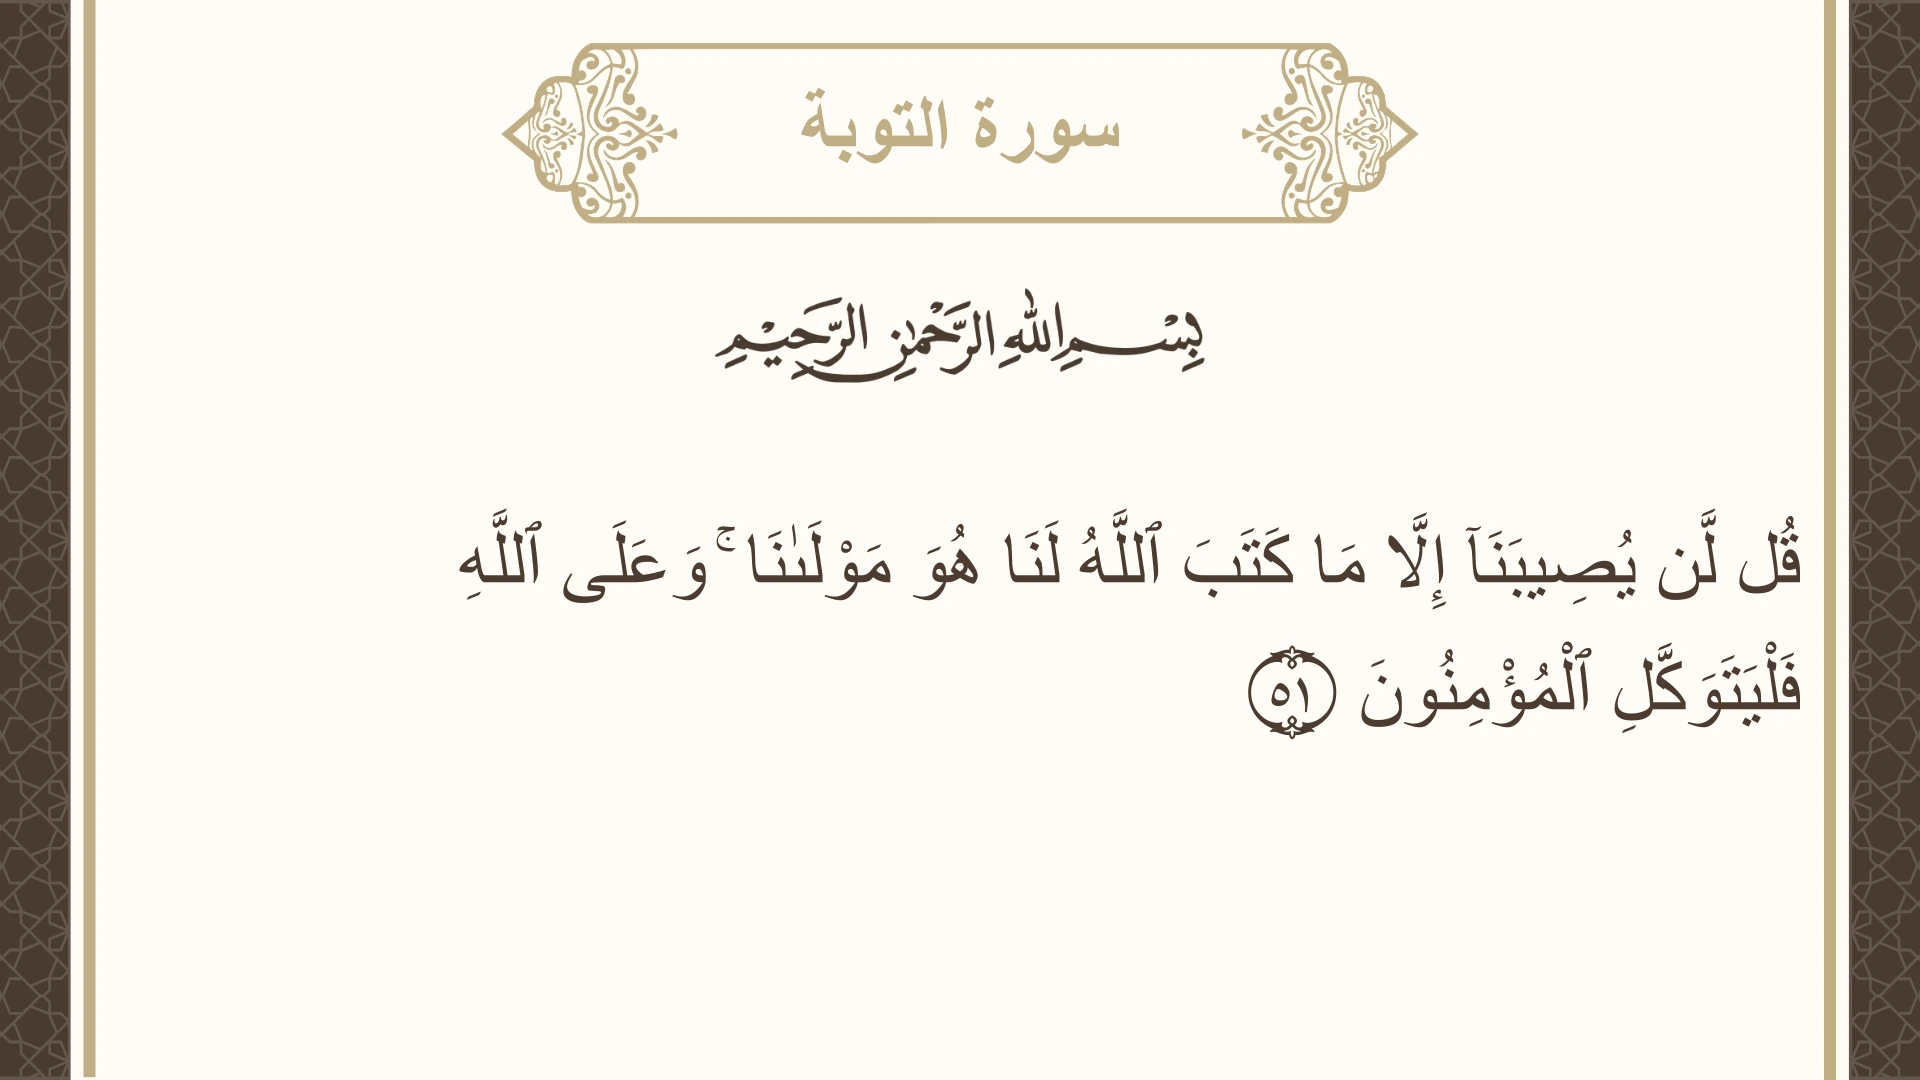 سورة التوبة
بِسْمِ اللهِ الرَّحْمٰنِ الرَّحِيْمِ
قُل لَّن يُصِيبَنَآ إِلَّا مَا كَتَبَ ٱللَّهُ لَنَا هُوَ مَوْلَىٰنَا ۚ وَعَلَى ٱللَّهِ
فَلْيَتَوَكَّلِ ٱلْمُؤْمِنُونَ ٥١